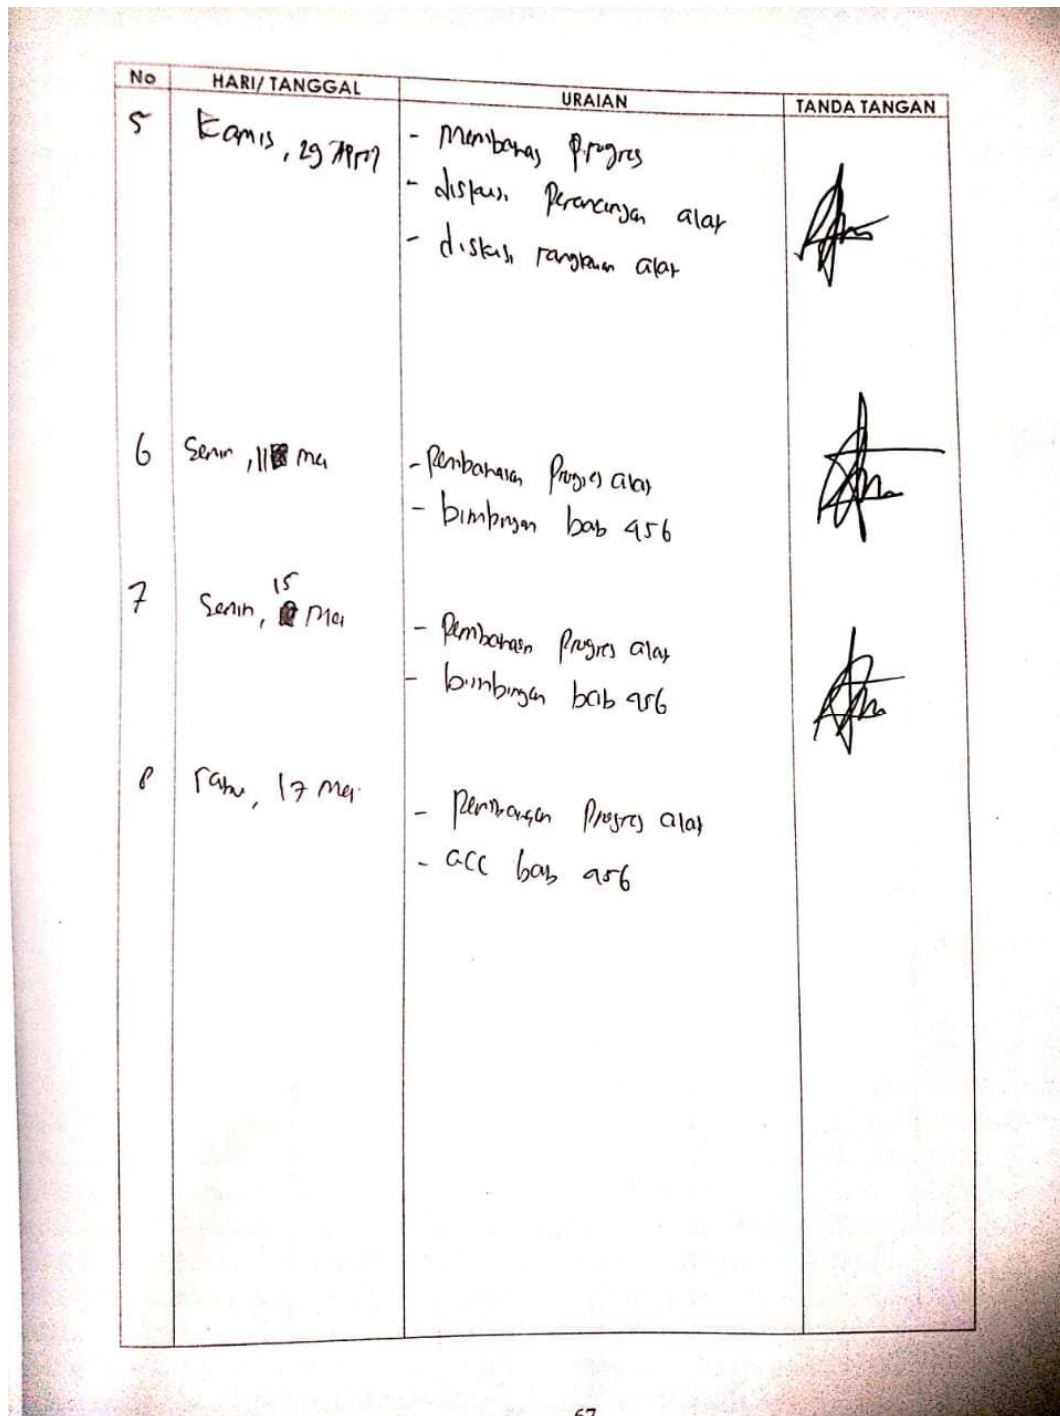 No HARI/ TANGGAL URAIAN TANDA TANGAN
5 Kamis, 29 April - Membahas Progres
- diskusi Perancangan alat
- diskusi rangkaian alat
6 Senin, 11 Mei - Pembahasan Progres alat
- bimbingan bab 456
15
7 Senin, Mei - Pembahasan Progres alat
- bimbingan bab 456
8 rabu, 17 Mei - Pembahasan Progres alat
- acc bab 456
67